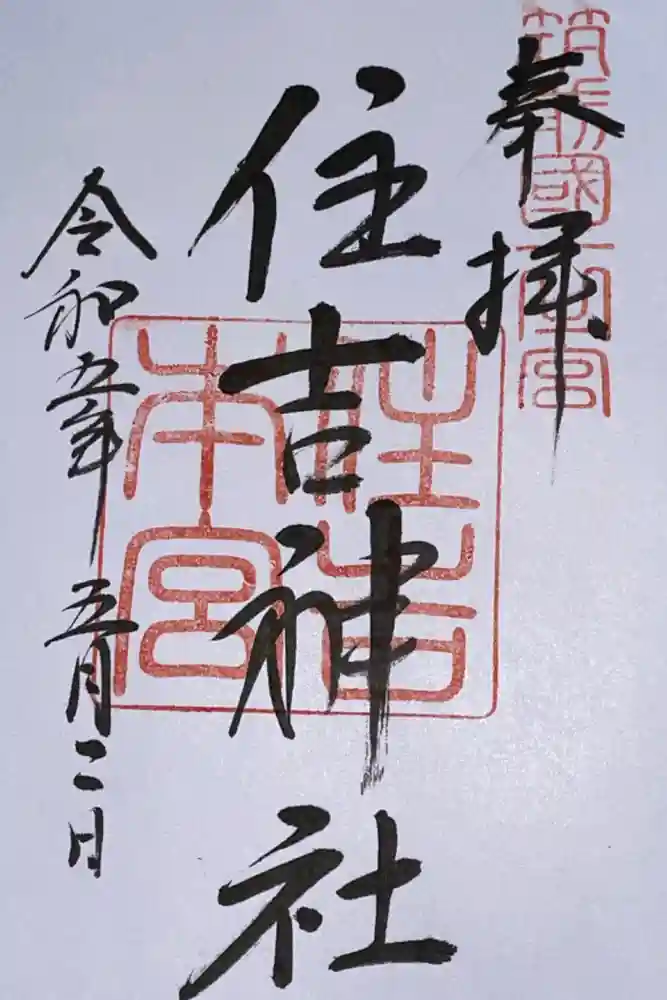 奉拝
筑前國一宮
住吉神社
住吉本宮
令和五年 五月二日